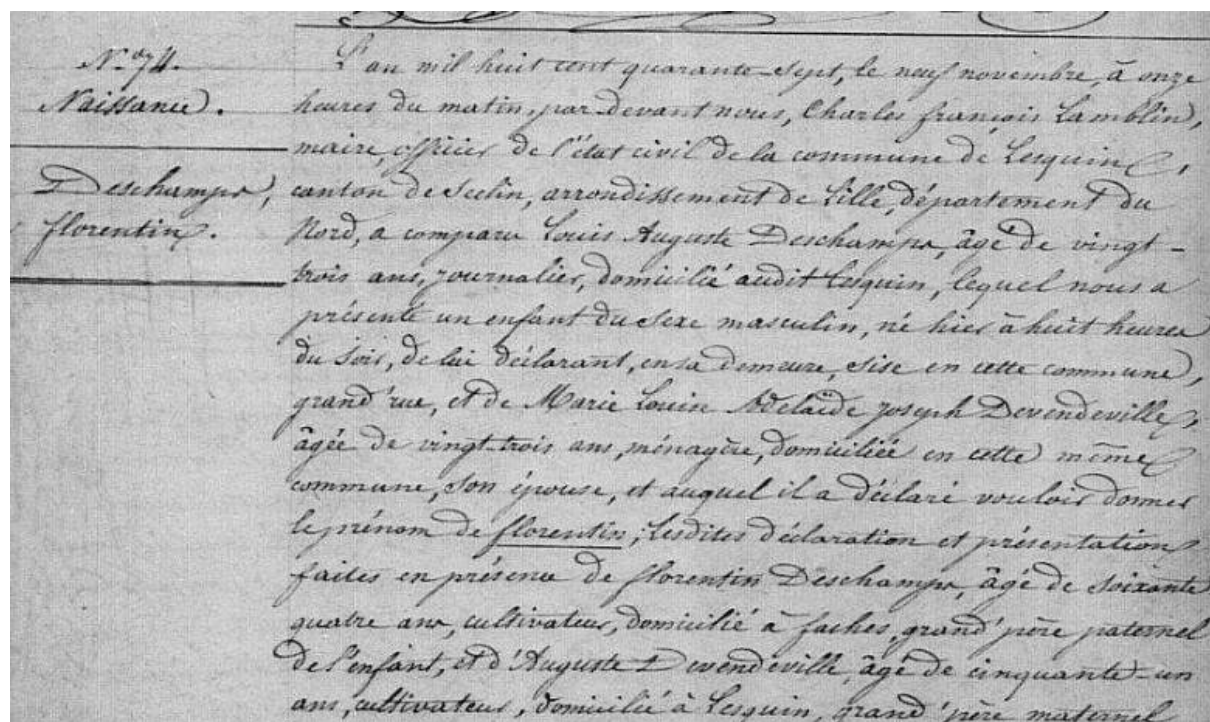 N.º 74.
Naissance.
Deschamps,
florentin.
L'an mil huit cent quarante-sept, le neuf novembre, à onze
heures du matin, par devant nous, Charles françois Lamblin,
maire, officier de l'état civil de la commune de Lesquin,
canton de Seclin, arrondissement de Lille, département du
Nord, a comparu Louis Auguste Deschamps, âgé de vingt-
trois ans, journalier, domicilié audit Lesquin, lequel nous a
présenté un enfant du sexe masculin, né hier à huit heures
du soir, de lui déclarant, en sa demeure, sise en cette commune,
grand'rue, et de Marie Louise Adelaïde joseph Devendeville,
âgée de vingt-trois ans, ménagère, domiciliée en cette même
commune, son épouse, et auquel il a déclaré vouloir donner
le prénom de florentin; lesdites déclaration et présentation
faites en présence de florentin Deschamps, âgé de soixante
quatre ans, cultivateur, domicilié à faches, grand'père paternel
de l'enfant, et d'Auguste Devendeville, âgé de cinquante-un
ans, cultivateur, domicilié à Lesquin, grand'père maternel